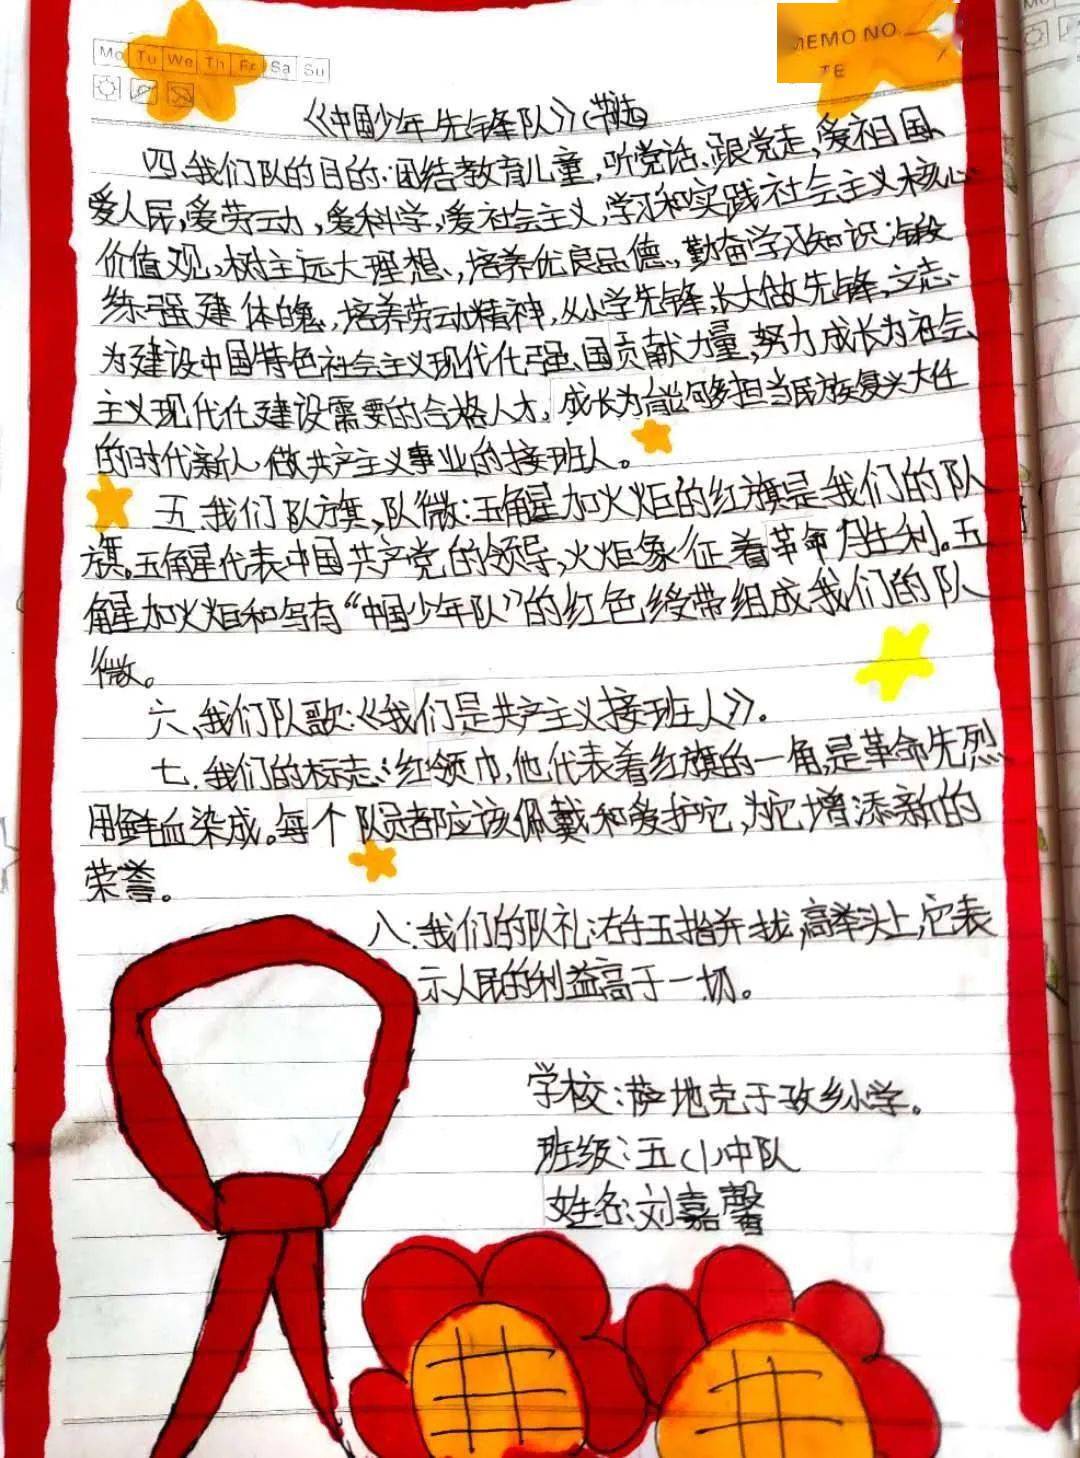 Mo Tu We Th Fr Sa Su
MEMO NO.
TE
《中国少年先锋队》(节选)
四、我们队的目的:团结教育儿童,听党话、跟党走,爱祖国、
爱人民,爱劳动,爱科学,爱社会主义,学习和实践社会主义核心
价值观,树立远大理想,培养优良品德,勤奋学习知识,锻
练强建体魄,培养劳动精神,从小学先锋,长大做先锋,立志
为建设中国特色社会主义现代化强国贡献力量,努力成长为社会
主义现代化建设需要的合格人才,成长为能够担当民族复兴大任
的时代新人,做共产主义事业的接班人。
五、我们队旗、队微:五角星加火炬的红旗是我们的队
旗。五角星代表中国共产党的领导,火炬象征着革命胜利。五
角星加火炬和写有“中国少年队”的红色绶带组成我们的队
微。
六、我们队歌:《我们是共产主义接班人》。
七、我们的标志:红领巾,他代表着红旗的一角,是革命先烈
用鲜血染成。每个队员都应该佩戴和爱护它,为它增添新的
荣誉。
八:我们的队礼:右手五指并拢,高举头上,它表
示人民的利益高于一切。
学校:萨地克于孜乡小学。
班级:五(1)中队
姓名:刘嘉馨